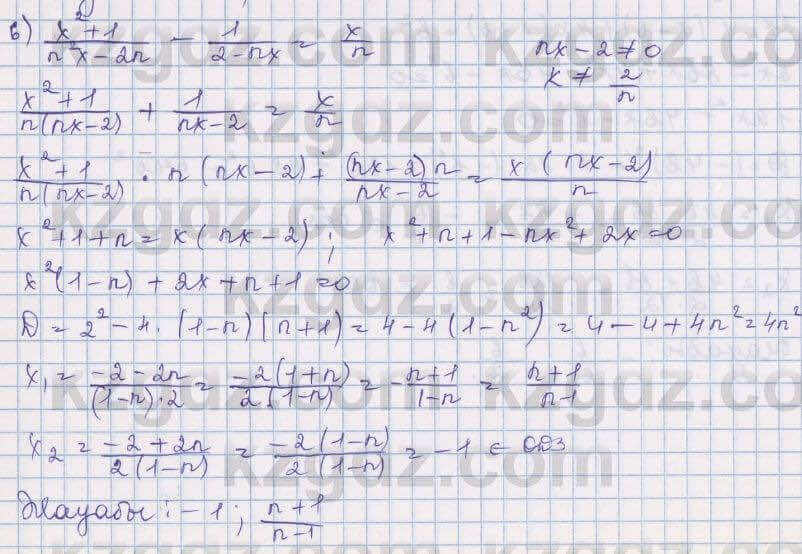 б) (x²+1)/(n²x-2n) - 1/(2-nx) = x/n nx-2≠0
x ≠ 2/n
(x²+1)/(n(nx-2)) + 1/(nx-2) = x/n
(x²+1)/(n(nx-2)) · n(nx-2) + (nx-2)n/(nx-2) = x(nx-2)/n
x²+1+n = x(nx-2); x²+n+1-nx²+2x=0
x²(1-n)+2x+n+1=0
D = 2²-4·(1-n)(n+1) = 4-4(1-n²) = 4-4+4n²=4n²
x₁ = (-2-2n)/((1-n)·2) = -2(1+n)/(2(1-n)) = -(n+1)/(1-n) = (n+1)/(n-1)
x₂ = (-2+2n)/(2(1-n)) = -2(1-n)/(2(1-n)) = -1 ∈ ОДЗ
Жауабы: -1; (n+1)/(n-1)
kzgdz.com